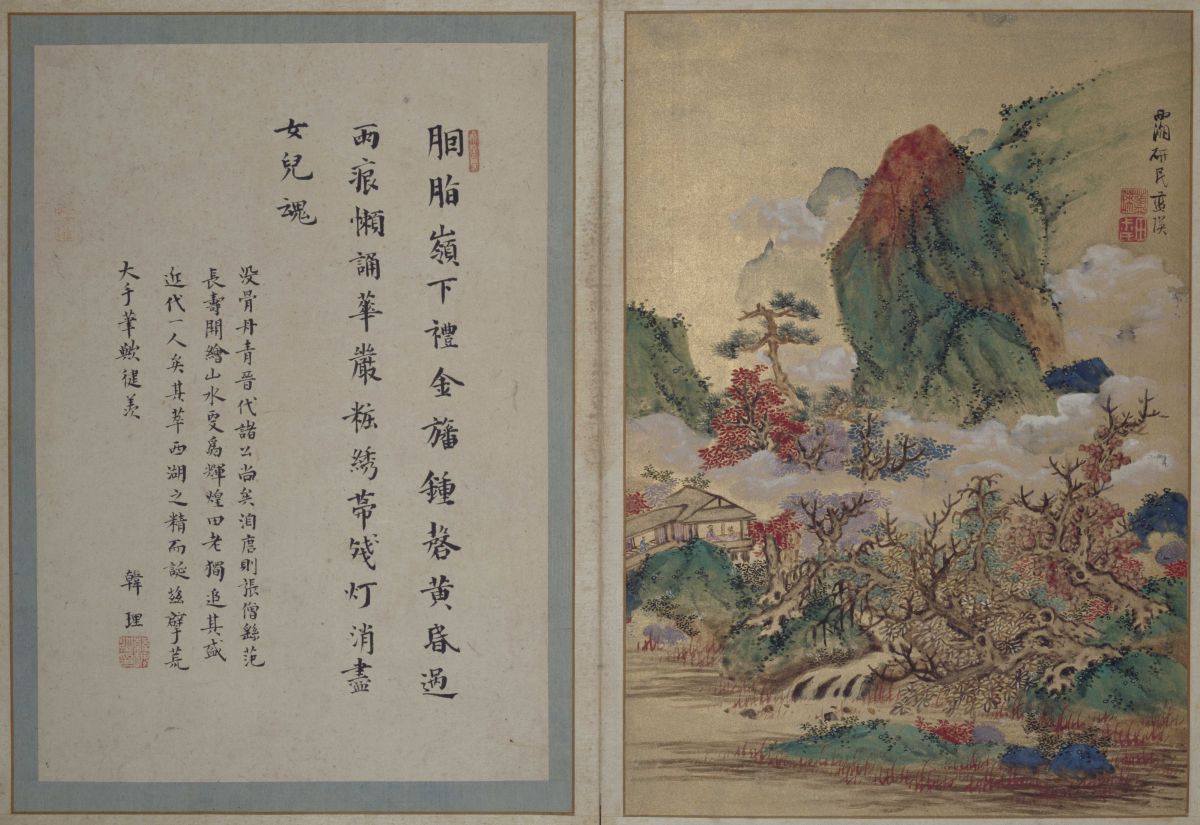 西湖研民藍瑛
胭脂嶺下禮金旛鍾磬黄昏過
雨痕懶誦華嚴粧綉帶残灯消盡
女兒魂
没骨丹青晉代諸公尚矣洎唐則張僧繇范
長壽開繪山水更爲輝煌田老獨追其盛
近代一人矣其萃西湖之精而誕茲擘荒
大手筆歟健羨
韓理